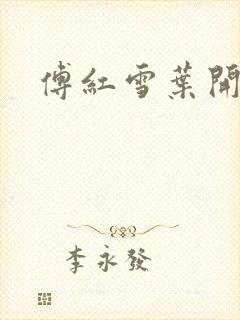 傅紅雪葉開
李永發